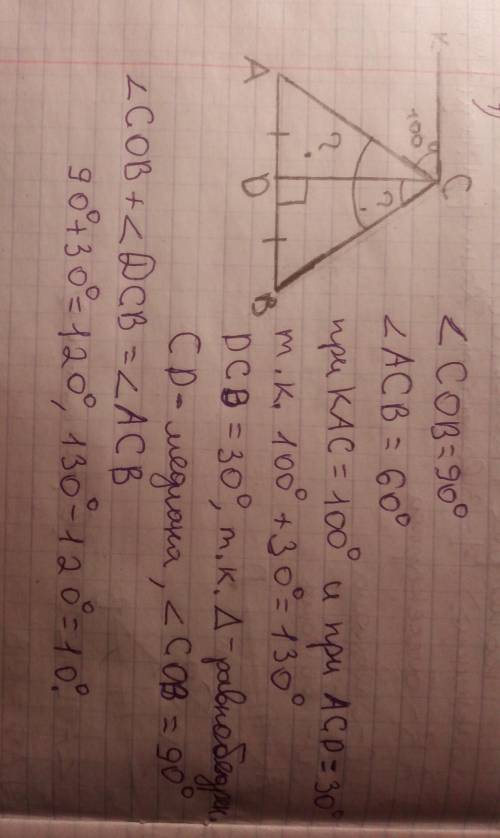 K
100°
C
A
?
?
D
B
∠COB=90°
∠ACB=60°
при KAC=100° и при ACD=30°
т.к. 100°+30°=130°
DCB=30°, т.к. Δ-равнобедрен,
CD-медиана, ∠COB=90°
∠COB+∠DCB=∠ACB
90°+30°=120°, 130°-120°=10°.